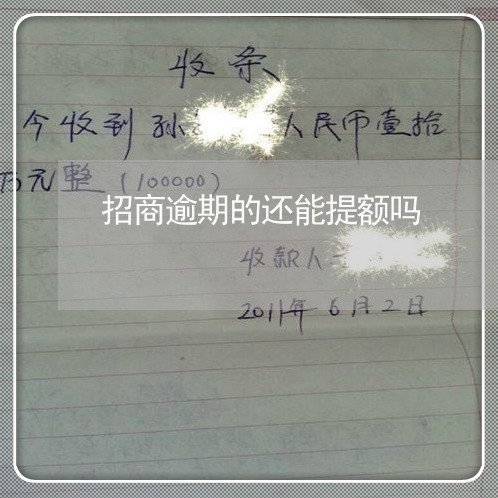 收条
今收到孙 人民币壹拾
万元整(100000)
招商逾期的还能提额吗
收款人
2011年6月2日